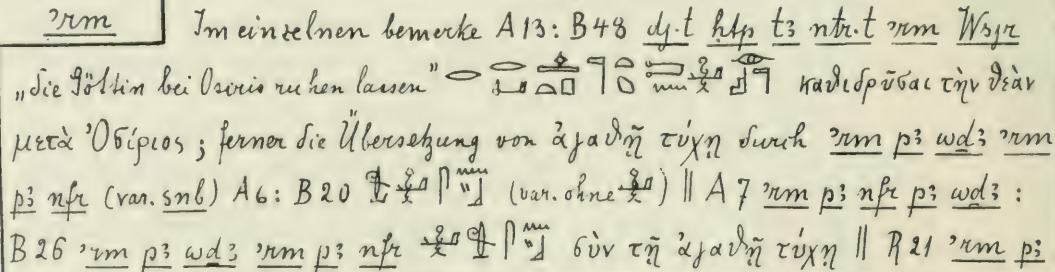 ꜣrm Im einzelnen bemerke A 13: B 48 dj·t ḥtp tꜣ nṯr·t ꜣrm Wsjr
„die Göttin bei Osiris ruhen lassen" καθιδρῦσαι τὴν θεὰν
μετὰ Ὀσίριος; ferner die Übersetzung von ἀγαθῇ τύχῃ durch ꜣrm pꜣ wḏꜣ ꜣrm
pꜣ nfr (var. snb) A 6: B 20 (var. ohne) || A 7 ꜣrm pꜣ nfr pꜣ wḏꜣ :
B 26 ꜣrm pꜣ wḏꜣ ꜣrm pꜣ nfr σὺν τῇ ἀγαθῇ τύχῃ || R 21 ꜣrm pꜣ